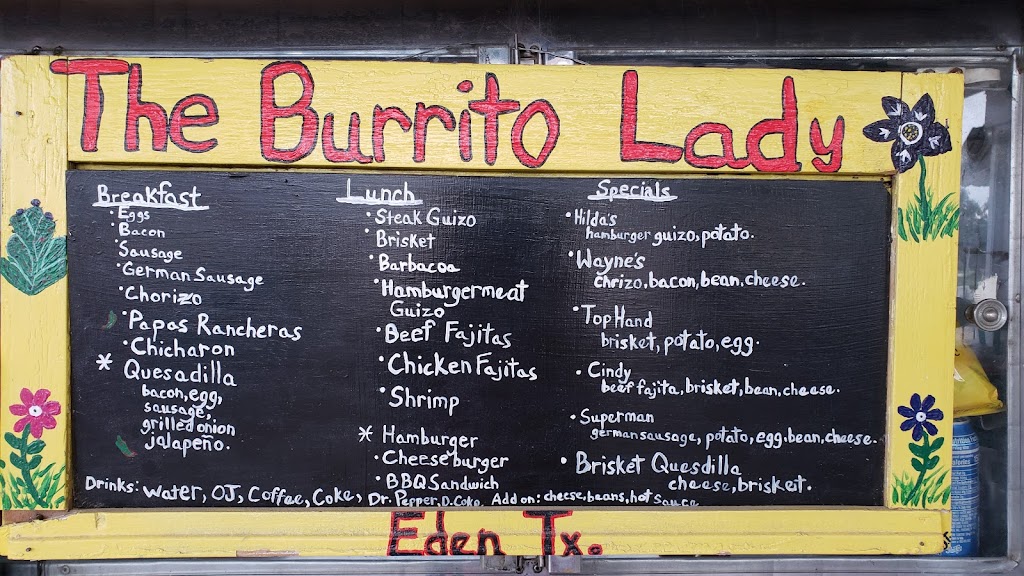 The Burrito Lady
Breakfast
• Eggs
• Bacon
• Sausage
• German Sausage
• Chorizo
• Papas Rancheras
• Chicharon
* Quesadilla
bacon, egg,
sausage,
grilled onion
jalapeño.
Lunch
• Steak Guizo
• Brisket
• Barbacoa
• Hamburgermeat
Guizo
• Beef Fajitas
• Chicken Fajitas
• Shrimp
* Hamburger
• Cheeseburger
• BBQ Sandwich
Specials
• Hilda's
hamburger guizo, potato.
• Wayne's
chrizo, bacon, bean, cheese.
• Top Hand
brisket, potato, egg.
• Cindy
beef fajita, brisket, bean, cheese.
• Superman
german sausage, potato, egg, bean, cheese.
• Brisket Quesdilla
cheese, brisket.
Drinks: Water, OJ, Coffee, Coke, Dr. Pepper, D. Coke. Add on: cheese, beans, hot sauce
Eden Tx.